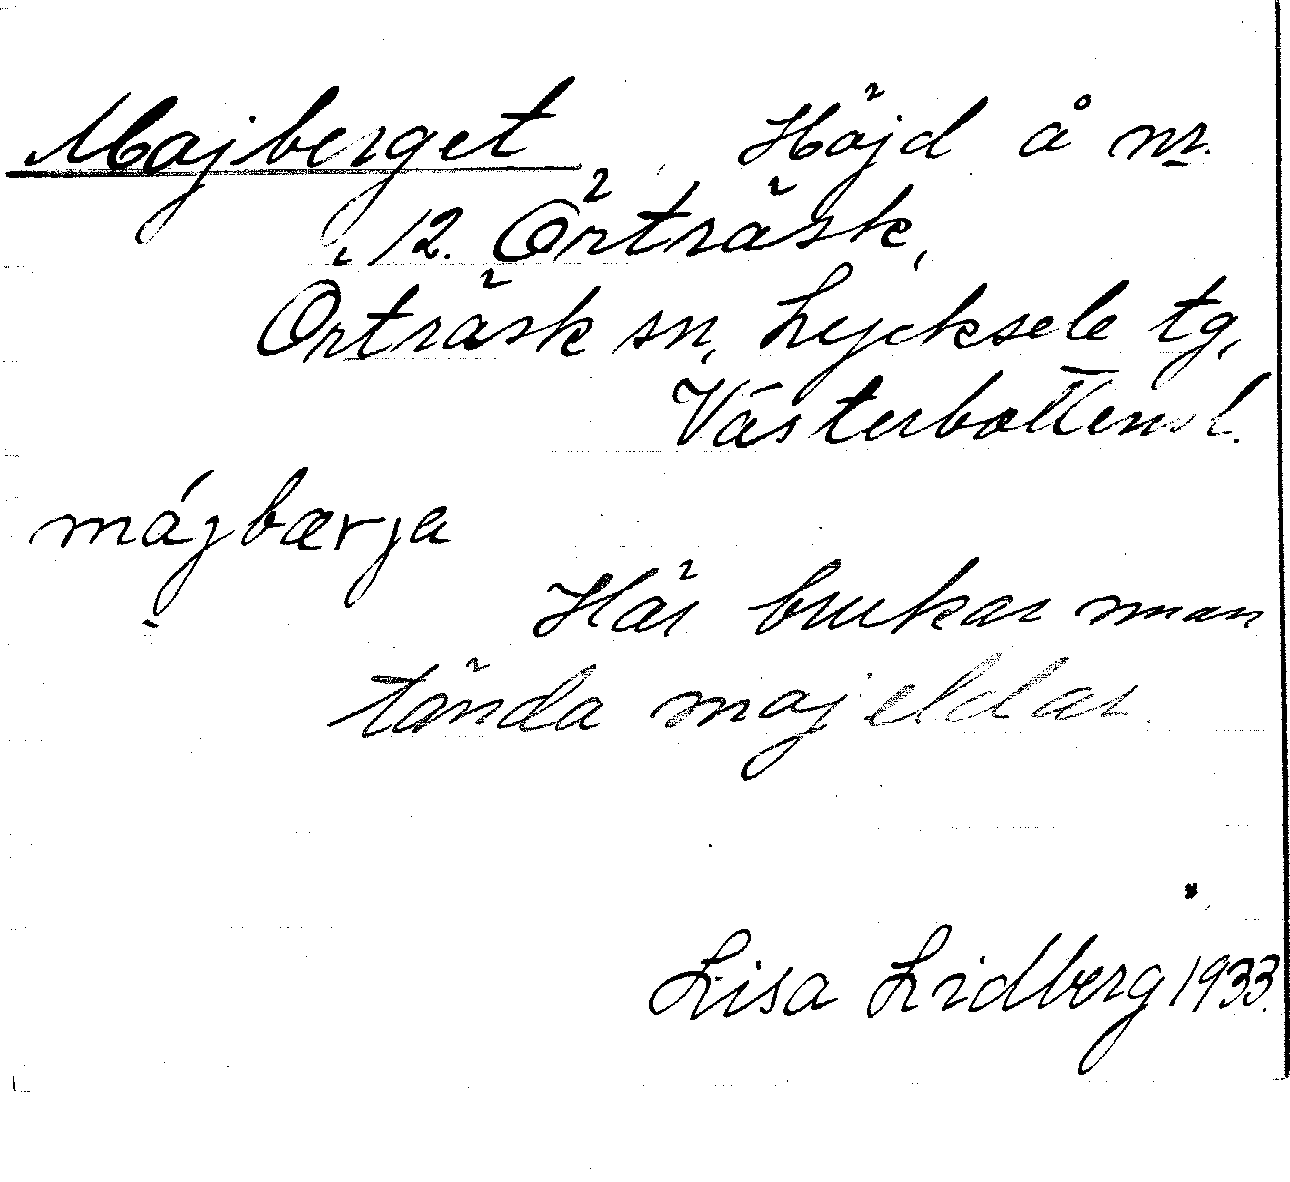 Majberget Höjd å nr.
12. Örträsk,
Örträsk sn, Lycksele tg,
Västerbottensl.
májbærja
Här brukar man
tända majeldar.
Lisa Lidberg 1933.